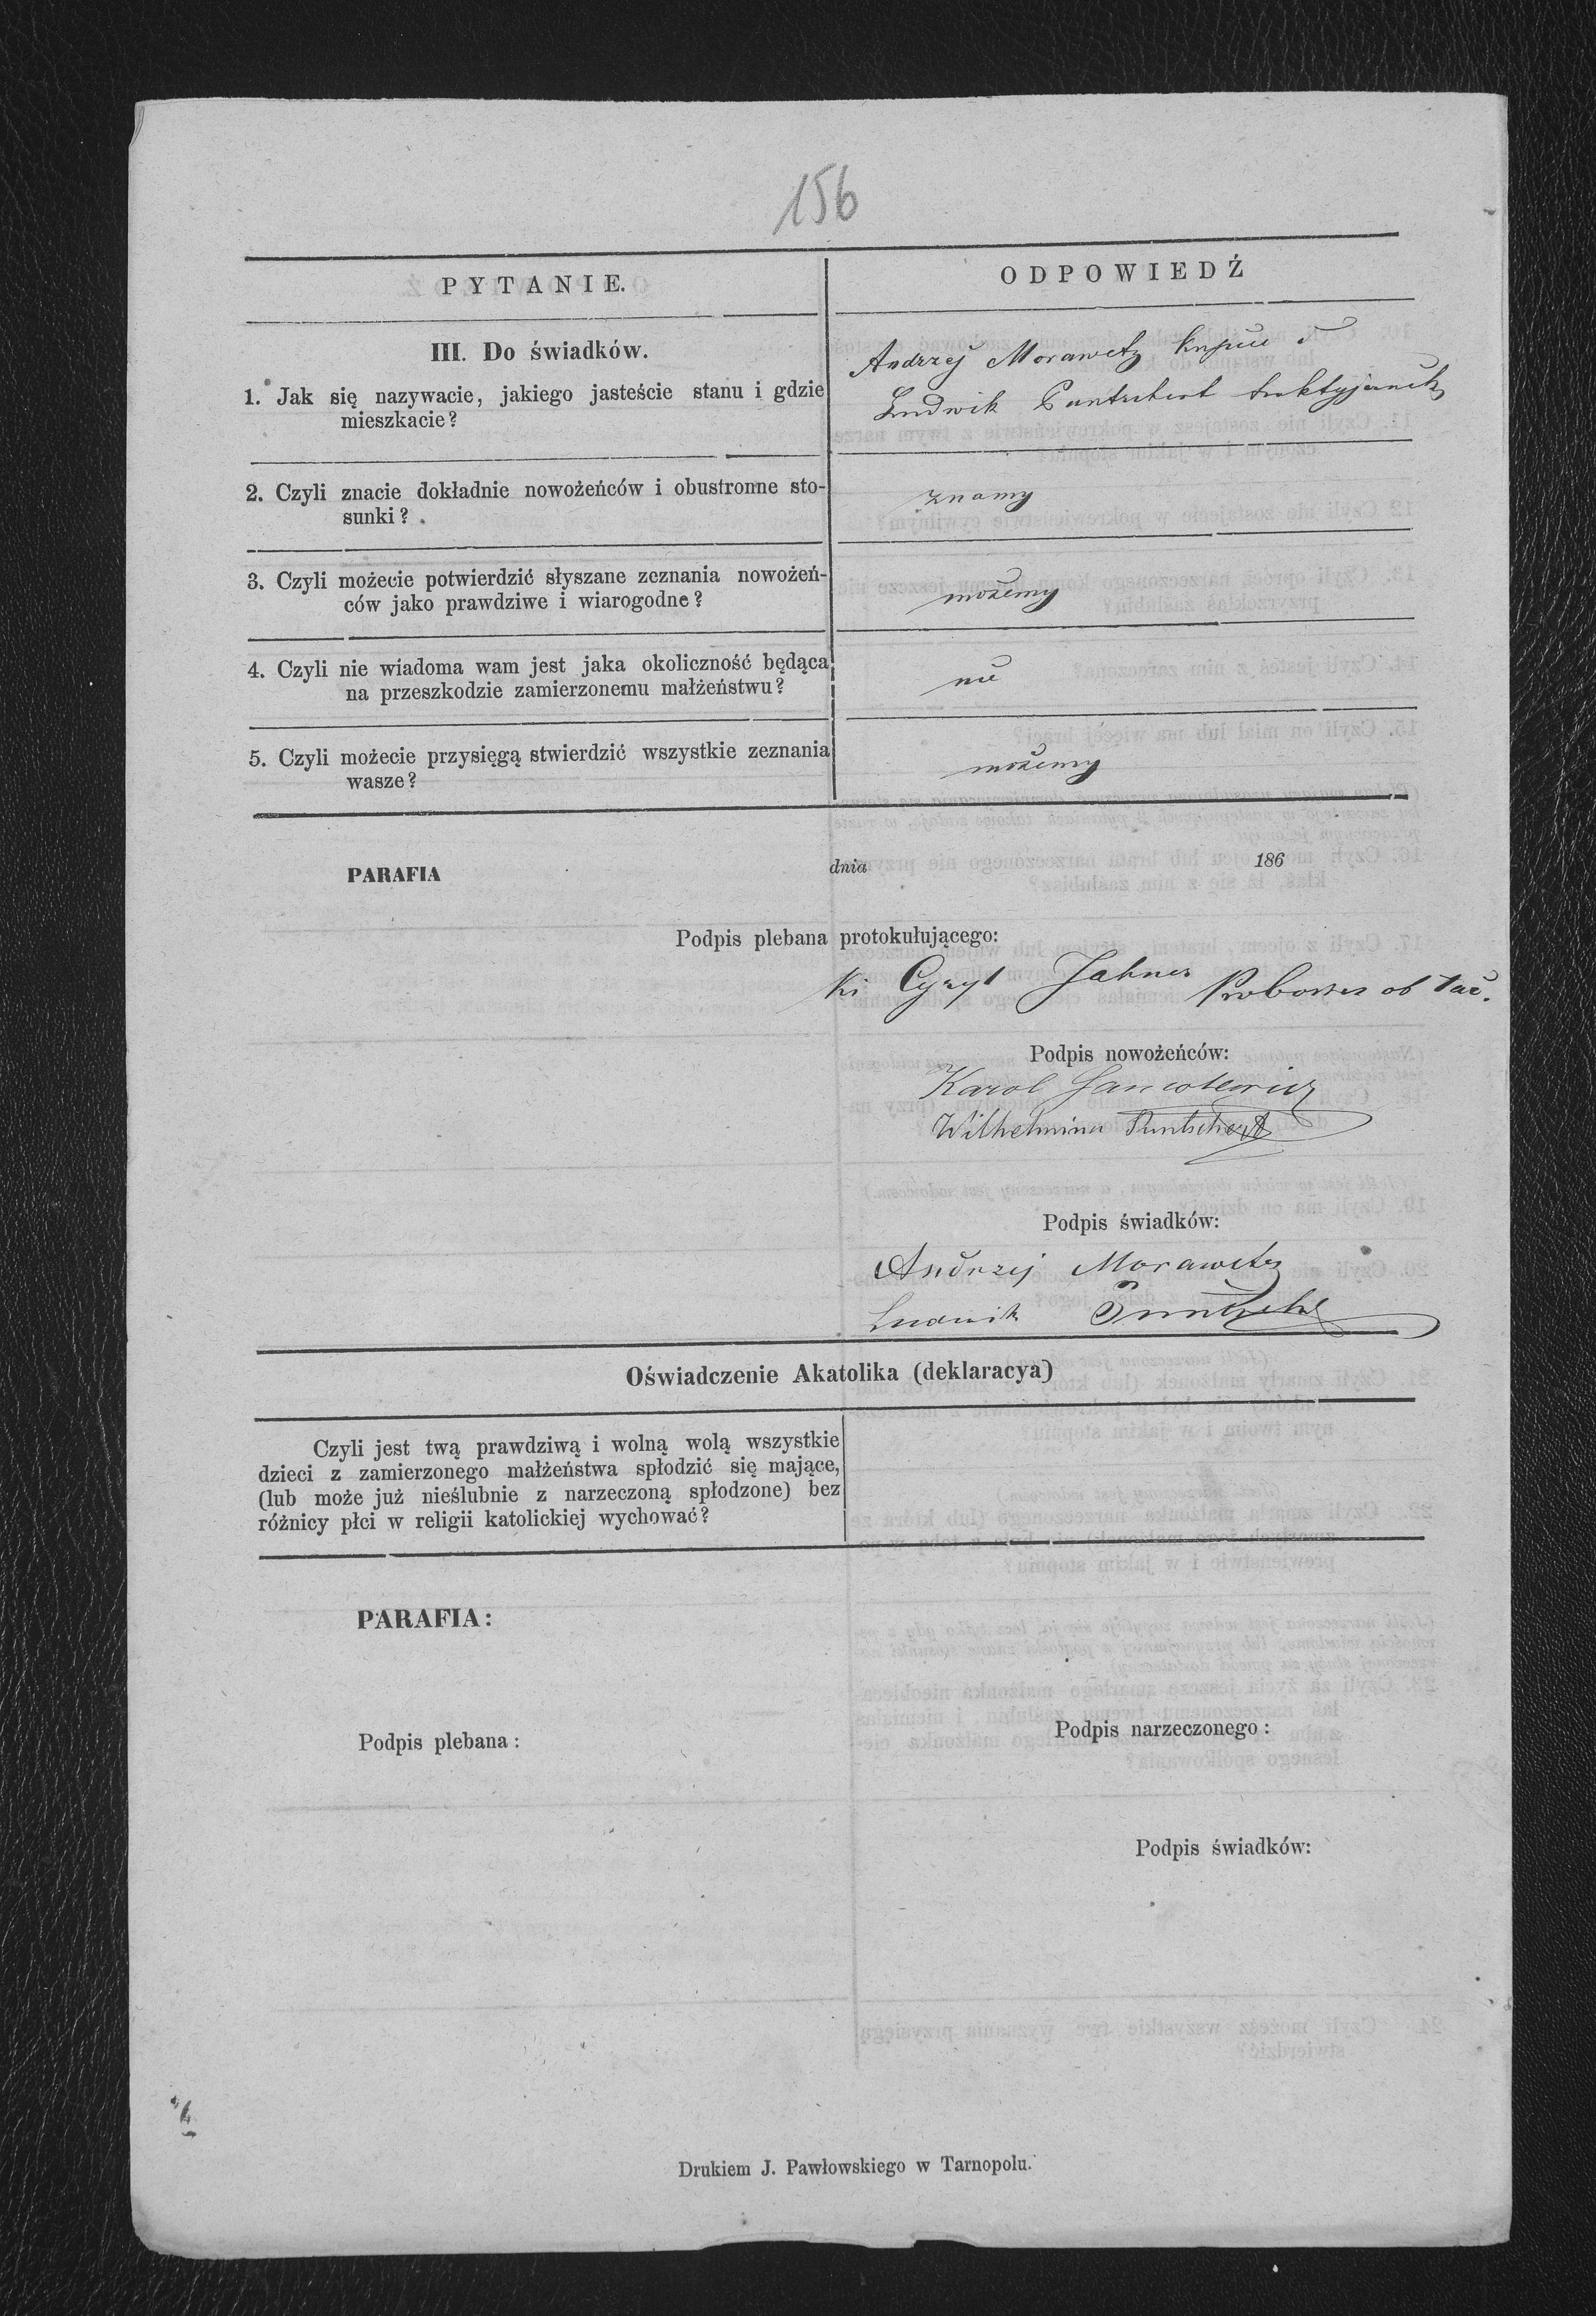 156
PYTANIE.
ODPOWIEDŹ
III. Do świadków.
1. Jak się nazywacie, jakiego jasteście stanu i gdzie
mieszkacie?
Andrzej Morawetz kupiec i
Ludwik Puntschert
2. Czyli znacie dokładnie nowożeńców i obustronne sto-
sunki?
znamy
3. Czyli możecie potwierdzić słyszane zeznania nowożeń-
ców jako prawdziwe i wiarogodne?
możemy
4. Czyli nie wiadoma wam jest jaka okoliczność będąca
na przeszkodzie zamierzonemu małżeństwu?
nie
5. Czyli możecie przysięgą stwierdzić wszystkie zeznania
wasze?
możemy
PARAFIA
dnia
186
Podpis plebana protokułującego:
Cyryl Jahner Proboszcz ob łac.
Podpis nowożeńców:
Karol
Wilhelmina Puntschert
Podpis świadków:
Andrzej Morawetz
Ludwik
Oświadczenie Akatolika (deklaracya)
Czyli jest twą prawdziwą i wolną wolą wszystkie
dzieci z zamierzonego małżeństwa spłodzić się mające,
(lub może już nieślubnie z narzeczoną spłodzone) bez
różnicy płci w religii katolickiej wychować?
PARAFIA:
Podpis plebana:
Podpis narzeczonego:
Podpis świadków:
Drukiem J. Pawłowskiego w Tarnopolu.